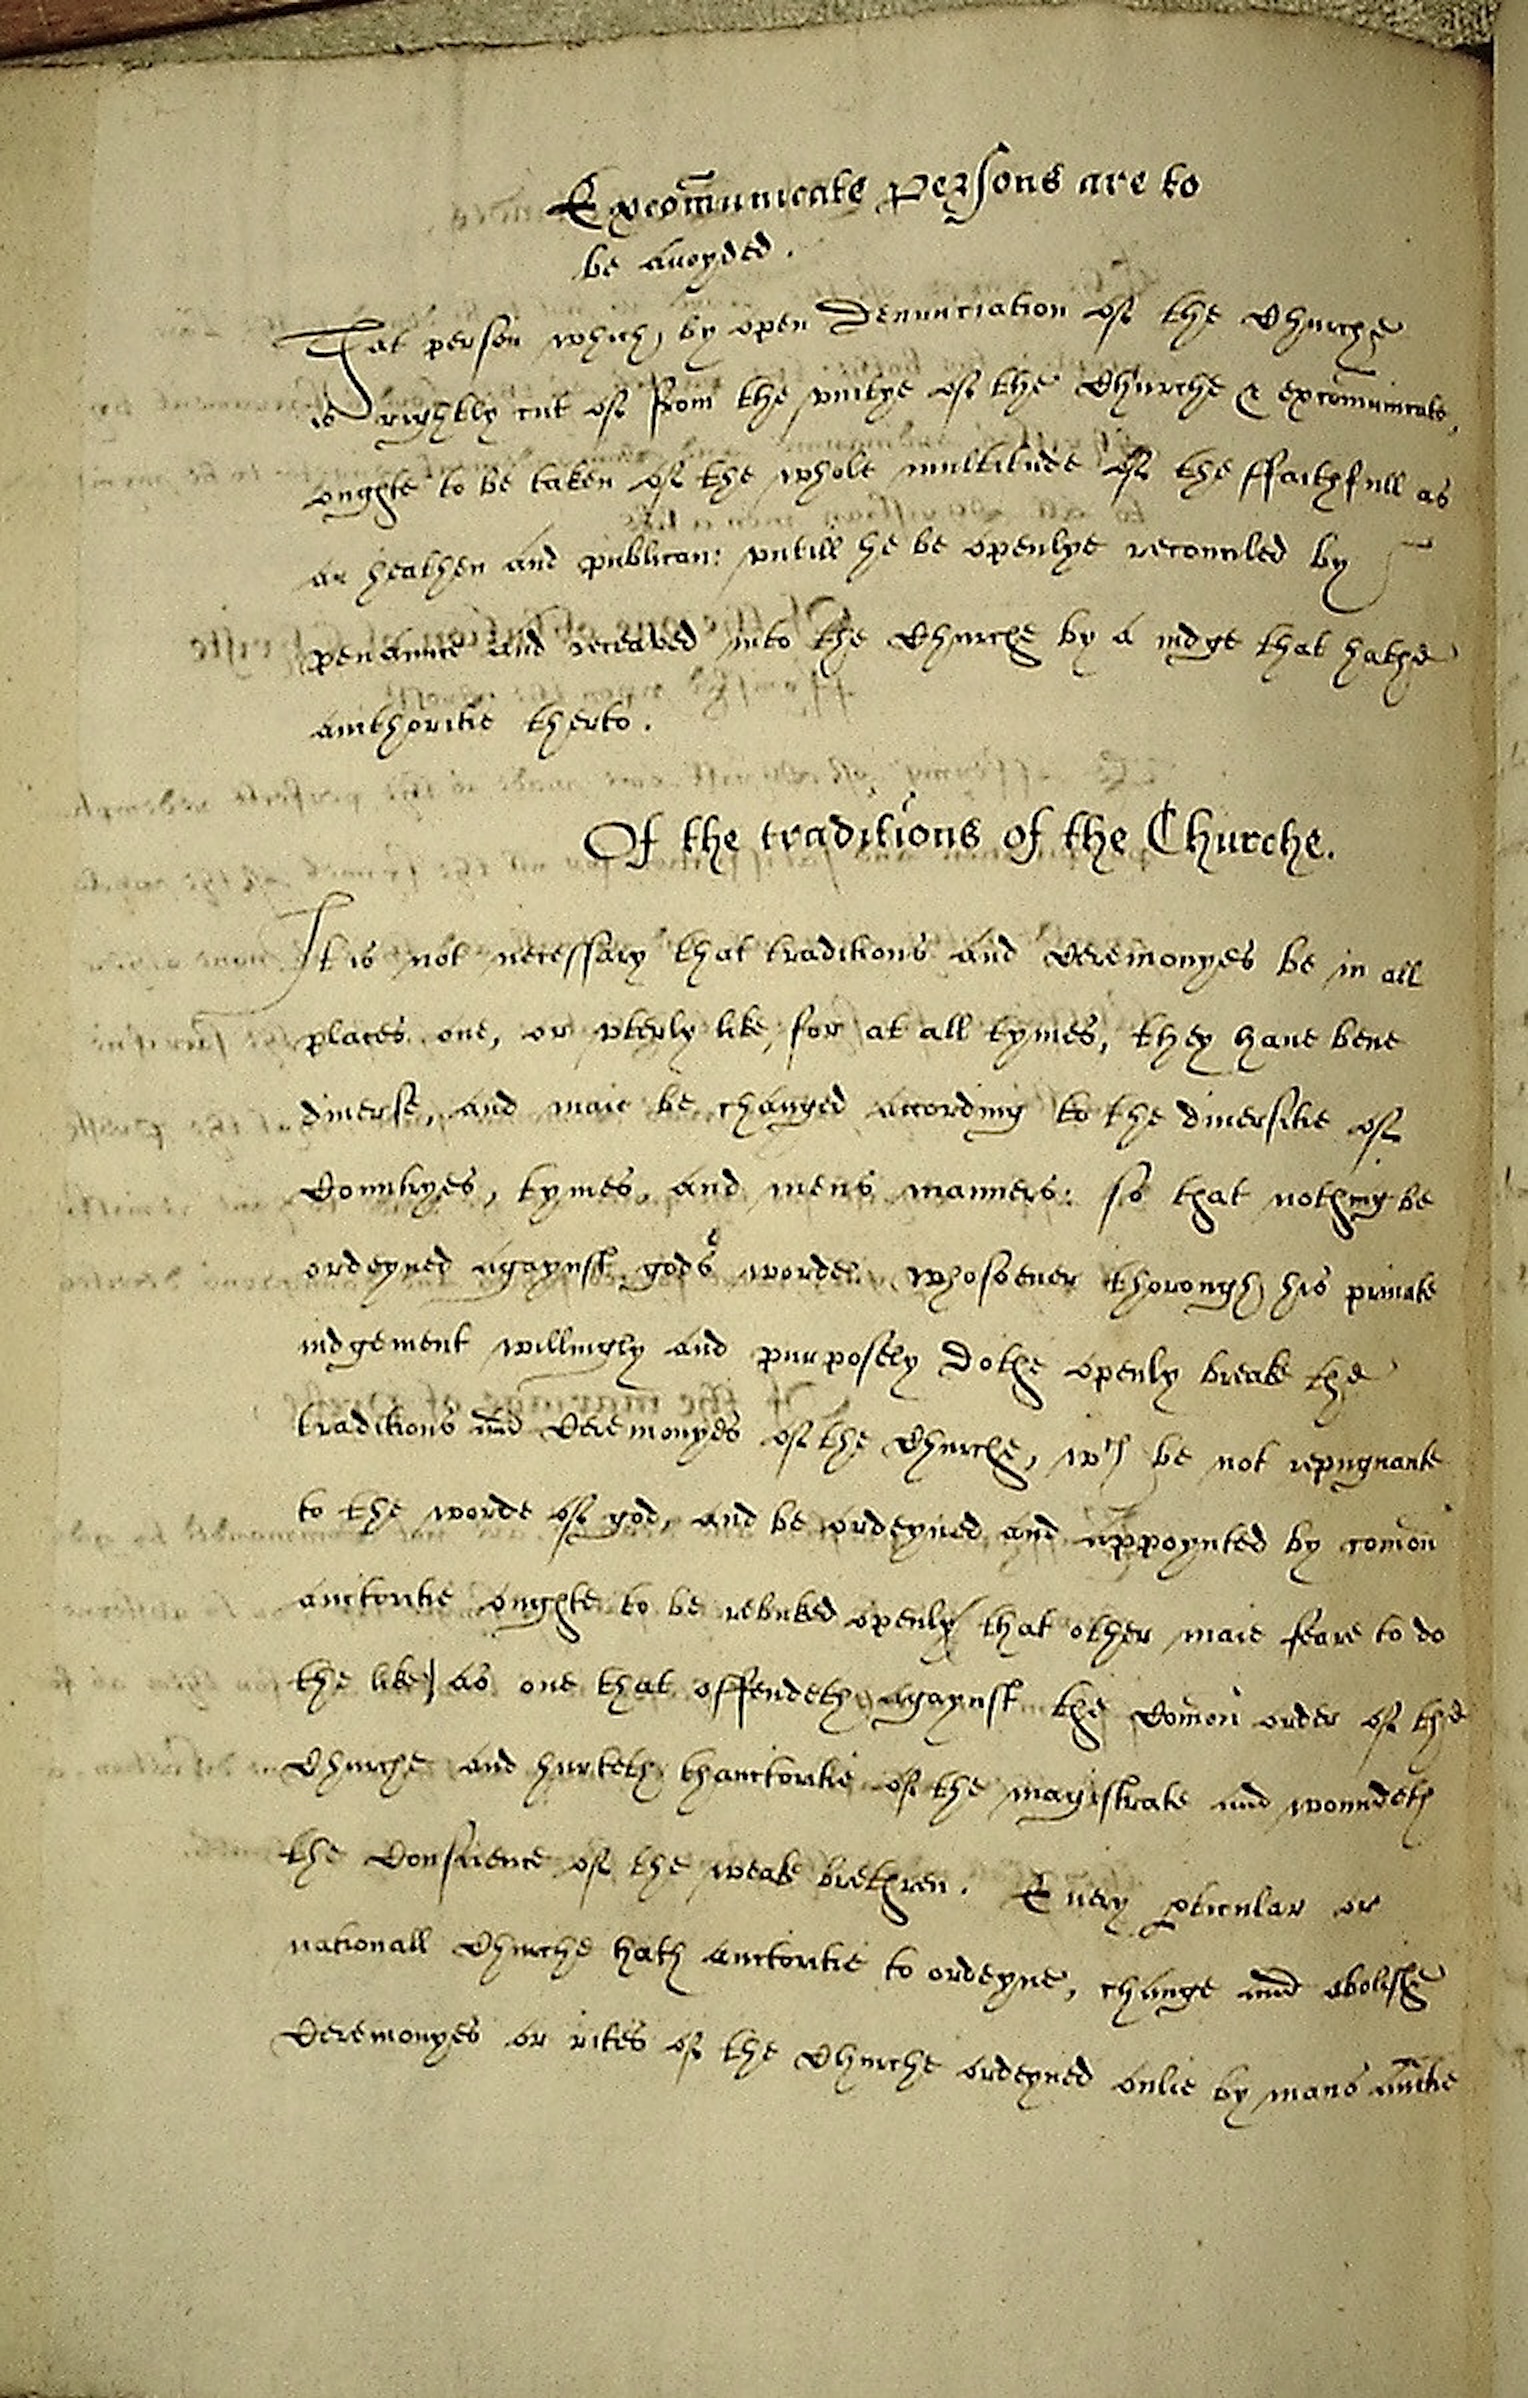 Excom̄unicate persons are to
be auoyded.
That person which, by open Denunciation of the Churche
is rightly cut of from the vnitye of the Churche & excom̄unicate,
oughte to be taken of the whole multitude of the ffaithfull as
an heathen and publican: vntill he be openlye reconciled by
penaunce and receaued into the Churche by a iudge that hathe
authoritie therto.
Of the traditions of the Churche.
It is not necessary that traditions and Ceremonyes be in all
places one, or vterly like, for at all tymes, they haue bene
diuerse, and maie be changed according to the diuersitie of
Countryes, tymes, and mens manners: so that nothing be
ordeyned agaynst gods worde. Whosoeuer thorough his priuate
iudgement willingly and purposely Dothe openly breake the
traditions and Ceremonyes of the Churche, wch be not repugnante
to the worde of god, and be ordeyned and appoynted by com̄on
auctoritie oughte to be rebuked openly (that other maie feare to do
the like) as one that offendeth agaynst the Com̄on order of the
Churche and hurteth thauctoritie of the magistrate and woundeth
the Conscience of the weake brethren. Euery p̱ticular or
nationall Churche hath auctoritie to ordeyne, change and abolishe
Ceremonyes or rites of the Churche ordeyned onlie by mans auctie